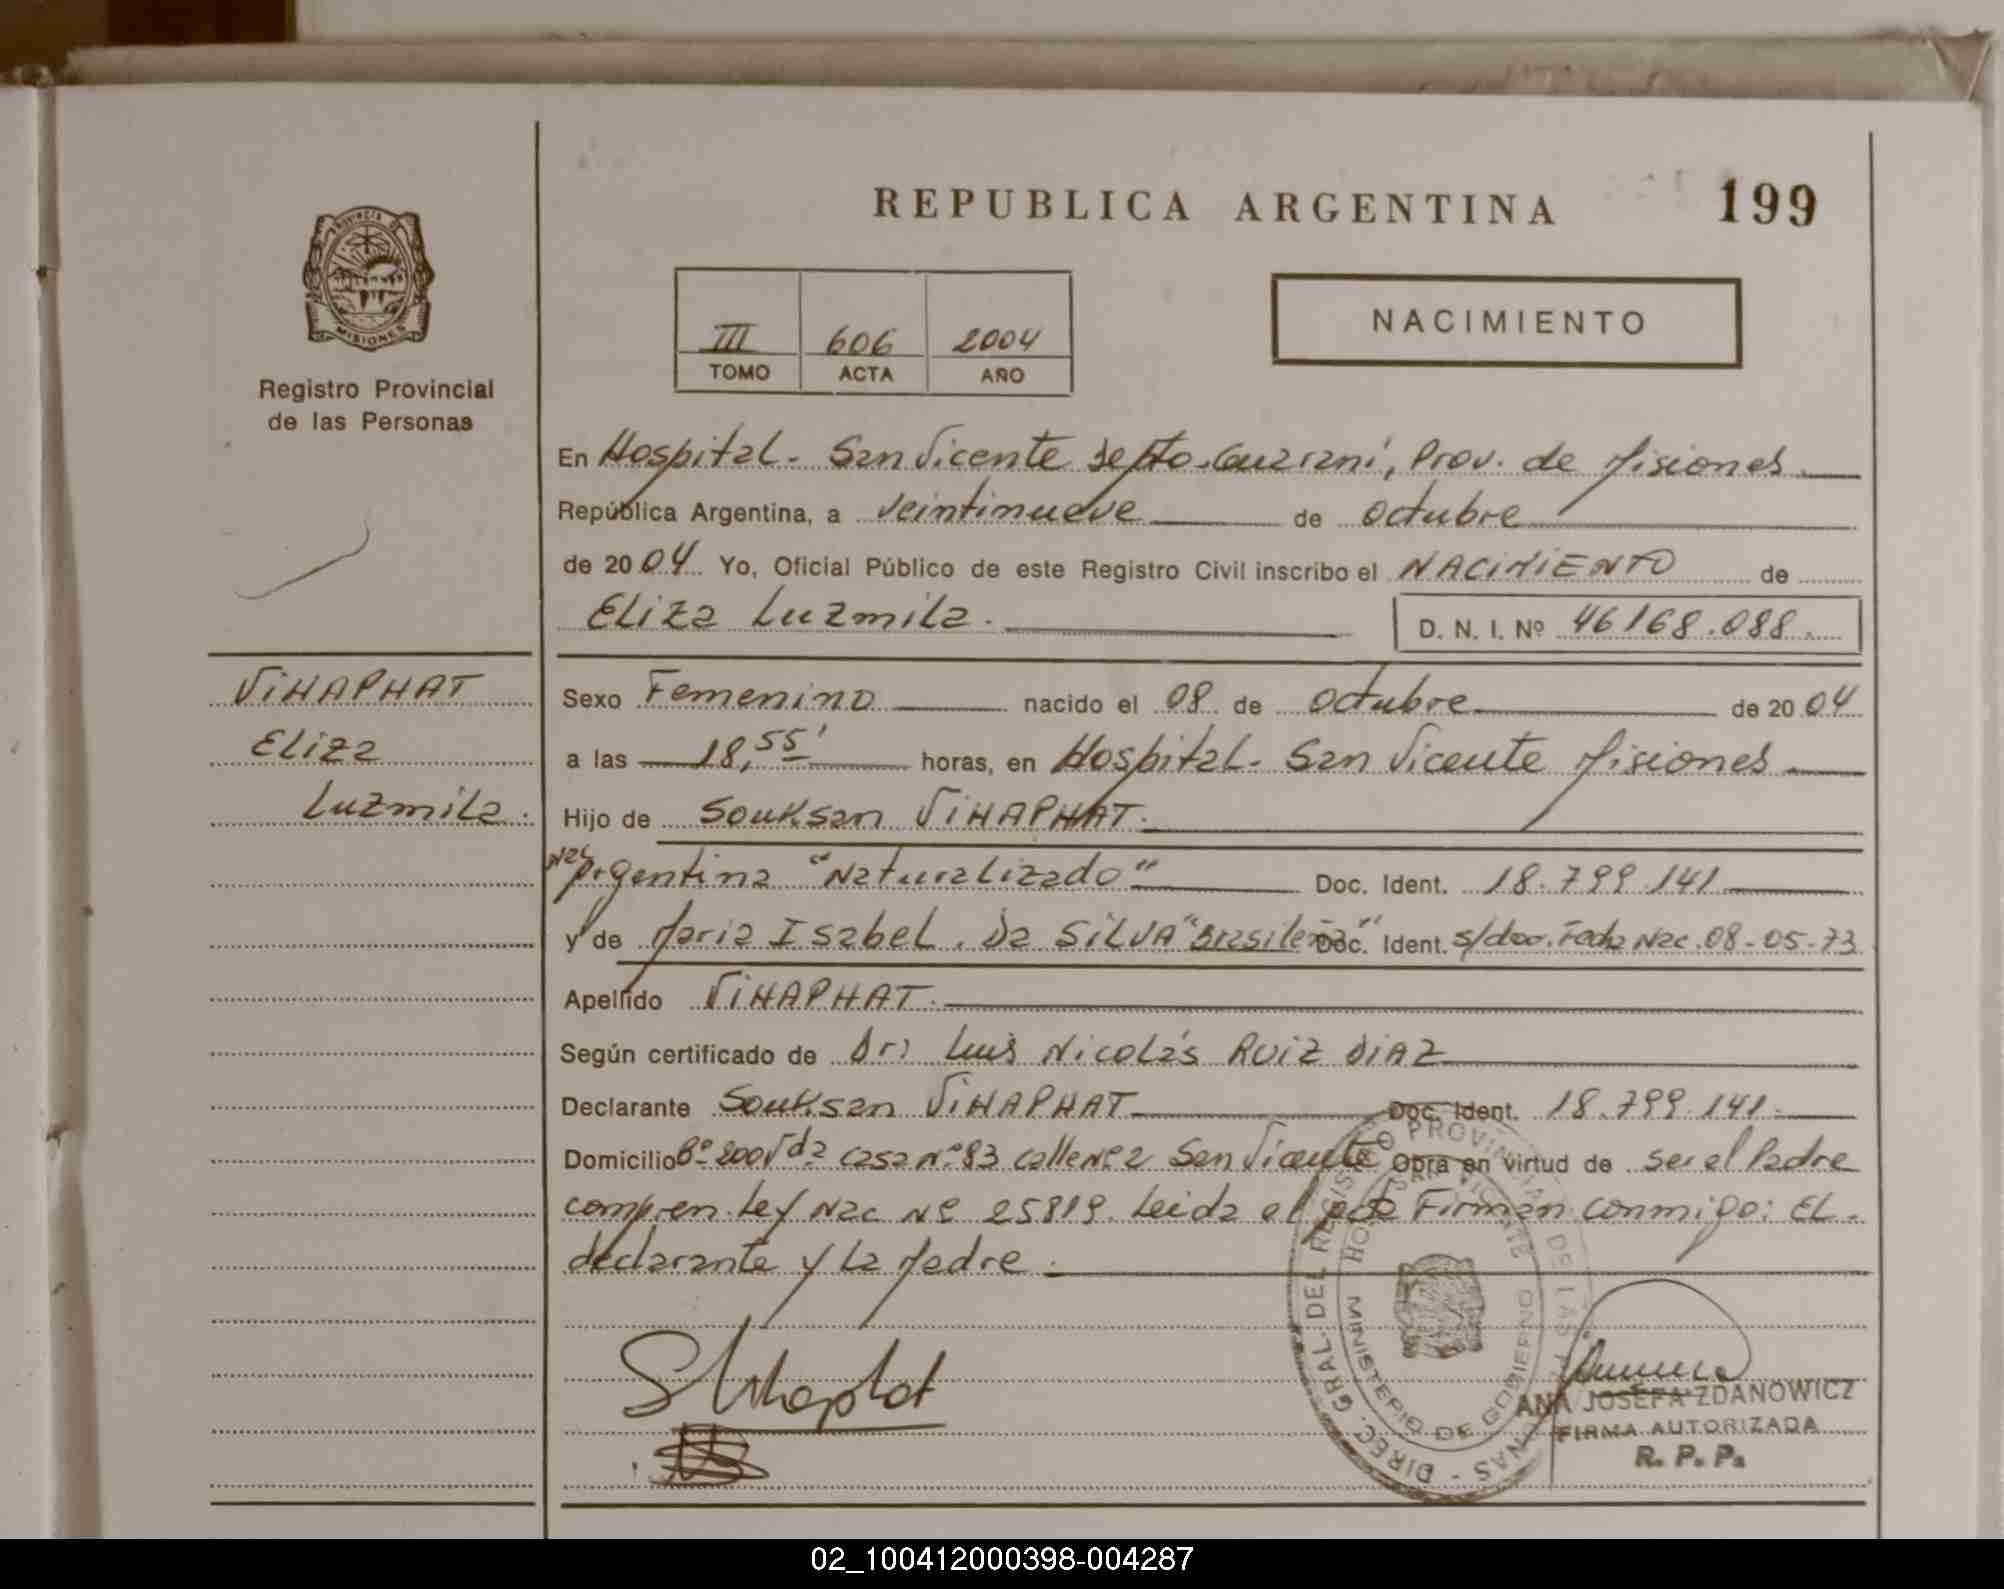 REPUBLICA ARGENTINA 199
PROVINCIA DE MISIONES
Registro Provincial
de las Personas
III 606 2004
TOMO ACTA AÑO
NACIMIENTO
En Hospital. San Vicente Depto. Guaraní, Prov. de Misiones
República Argentina, a veintinueve de octubre
de 2004 Yo, Oficial Público de este Registro Civil inscribo el NACIMIENTO de
Eliza Luzmila.
D. N. I. Nº 46168.088.
VIHAPHAT
Eliza
Luzmila.
Sexo Femenino nacido el 08 de octubre de 2004
a las 18,55' horas, en Hospital. San Vicente Misiones
Hijo de Souksan VIHAPHAT.
Nac Argentina "Naturalizado" Doc. Ident. 18.799.141
y de Maria Isabel. Da SILVA "Brasileña" Doc. Ident. s/doc. Fecha Nac. 08-05-73
Apellido VIHAPHAT.
Según certificado de Dr: Luis Nicolás RUIZ DIAZ
Declarante Souksan VIHAPHAT Doc. Ident. 18.799.141.
Domicilio Bº 200 Vda casa nº 83 calle Nº 2 San Vicente Obra en virtud de ser el Padre
compren. Ley Nac Nº 25819. Leida el acta Firman conmigo: El
declarante y la Madre.
DIREC. GRAL. DEL REGISTRO PROVINCIAL DE LAS PERSONAS
MINISTERIO DE GOBIERNO
SAN VICENTE
ANA JOSEFA ZDANOWICZ
FIRMA AUTORIZADA
R. P. P.
02_100412000398-004287